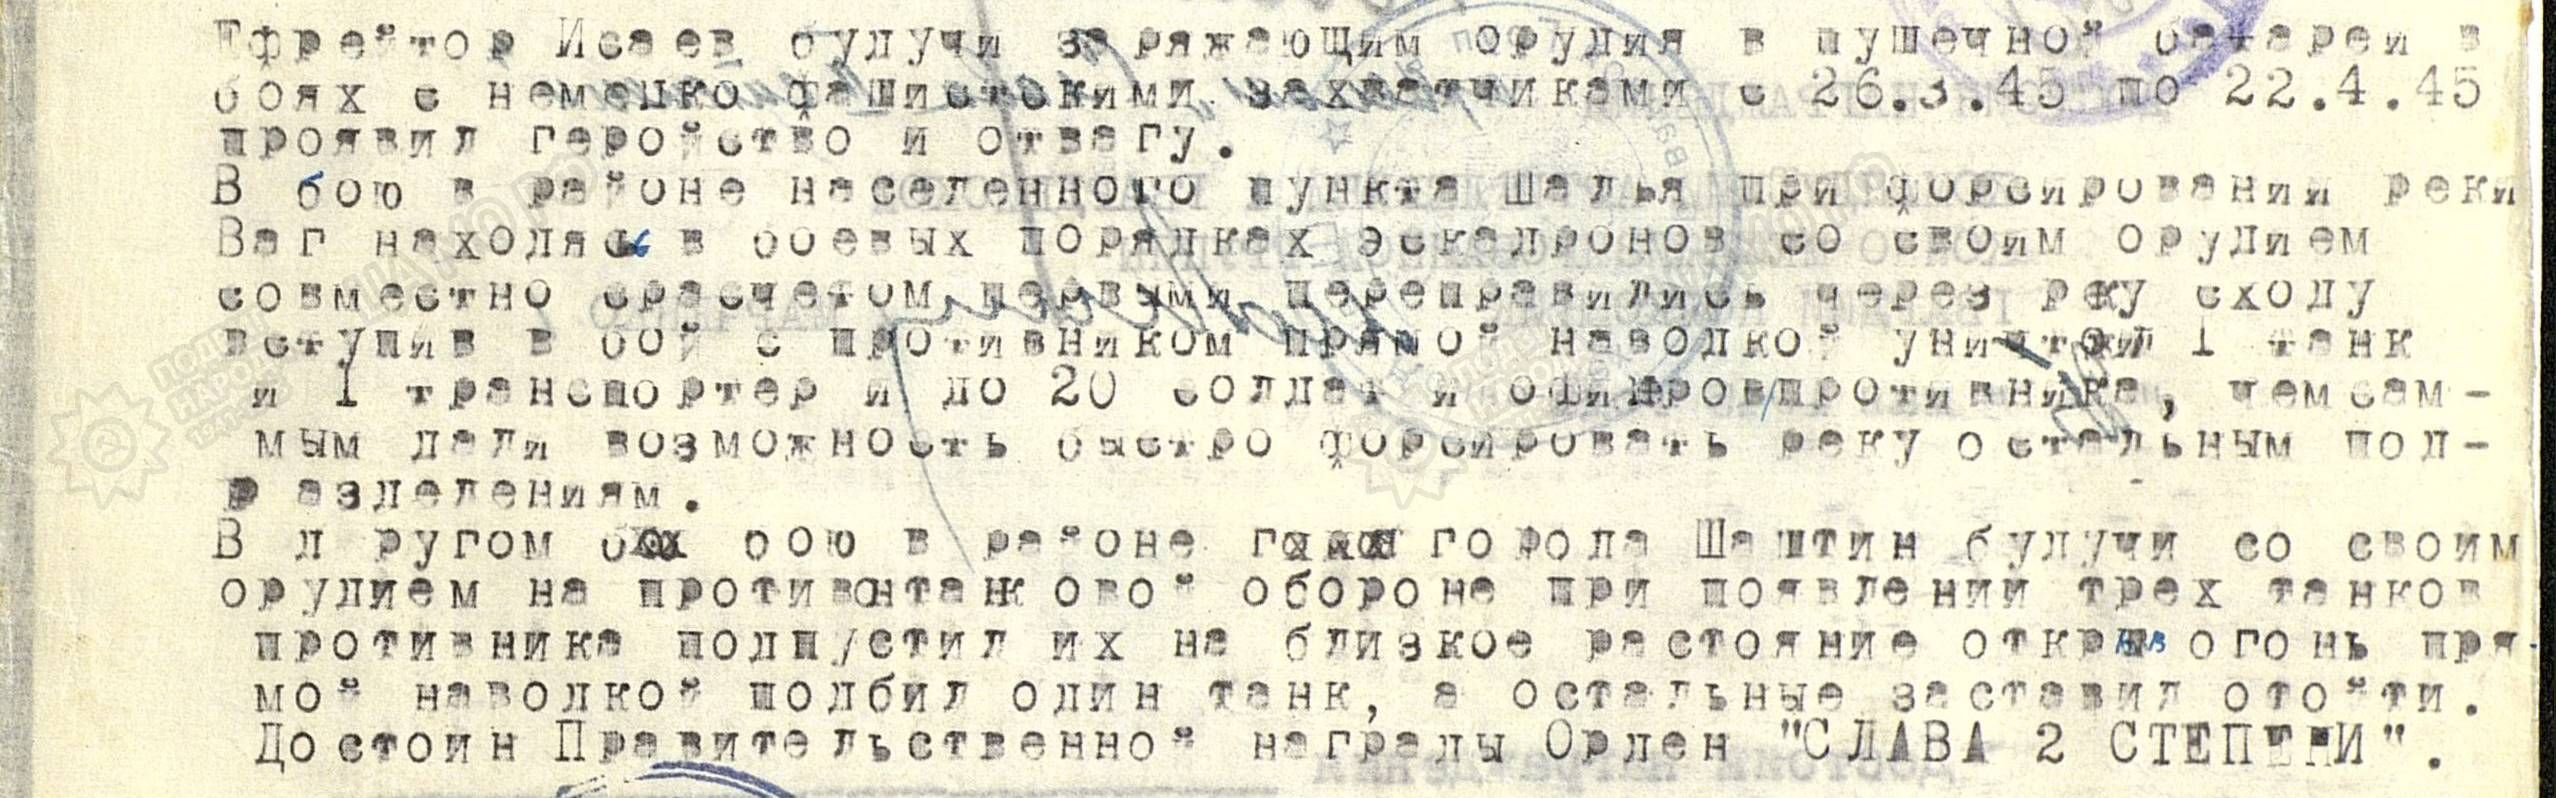 Ефрейтор Исаев будучи заряжающим орудия в пушечной батареи в
боях с немецко фашистскими захватчиками с 26.3.45 по 22.4.45
проявил геройство и отвагу.
В бою в районе населенного пункта Шалья при форсировании реки
Ваг находясь в боевых порядках эскадронов со своим орудием
совместно срасчетом первыми переправились через реку сходу
вступив в бой с противником прямой наводкой 1 танк
и 1 транспортер и до 20 солдат и офицров/противника, чемсам-
мым дали возможность быстро форсировать реку остальным под-
р азделениям.
В д ругом бою в районе города Шаштин будучи со своим
орудием на противотанк овой обороне при появлении трех танков
противника подпустил их на близкое растояние открыв огонь пря-
мой наводкой подбил один танк, а остальные заставил отойти.
Достоин Правительственной награды Орден "СЛАВА 2 СТЕПЕНИ".
ПОДВИГ
НАРОДА
1941-1945